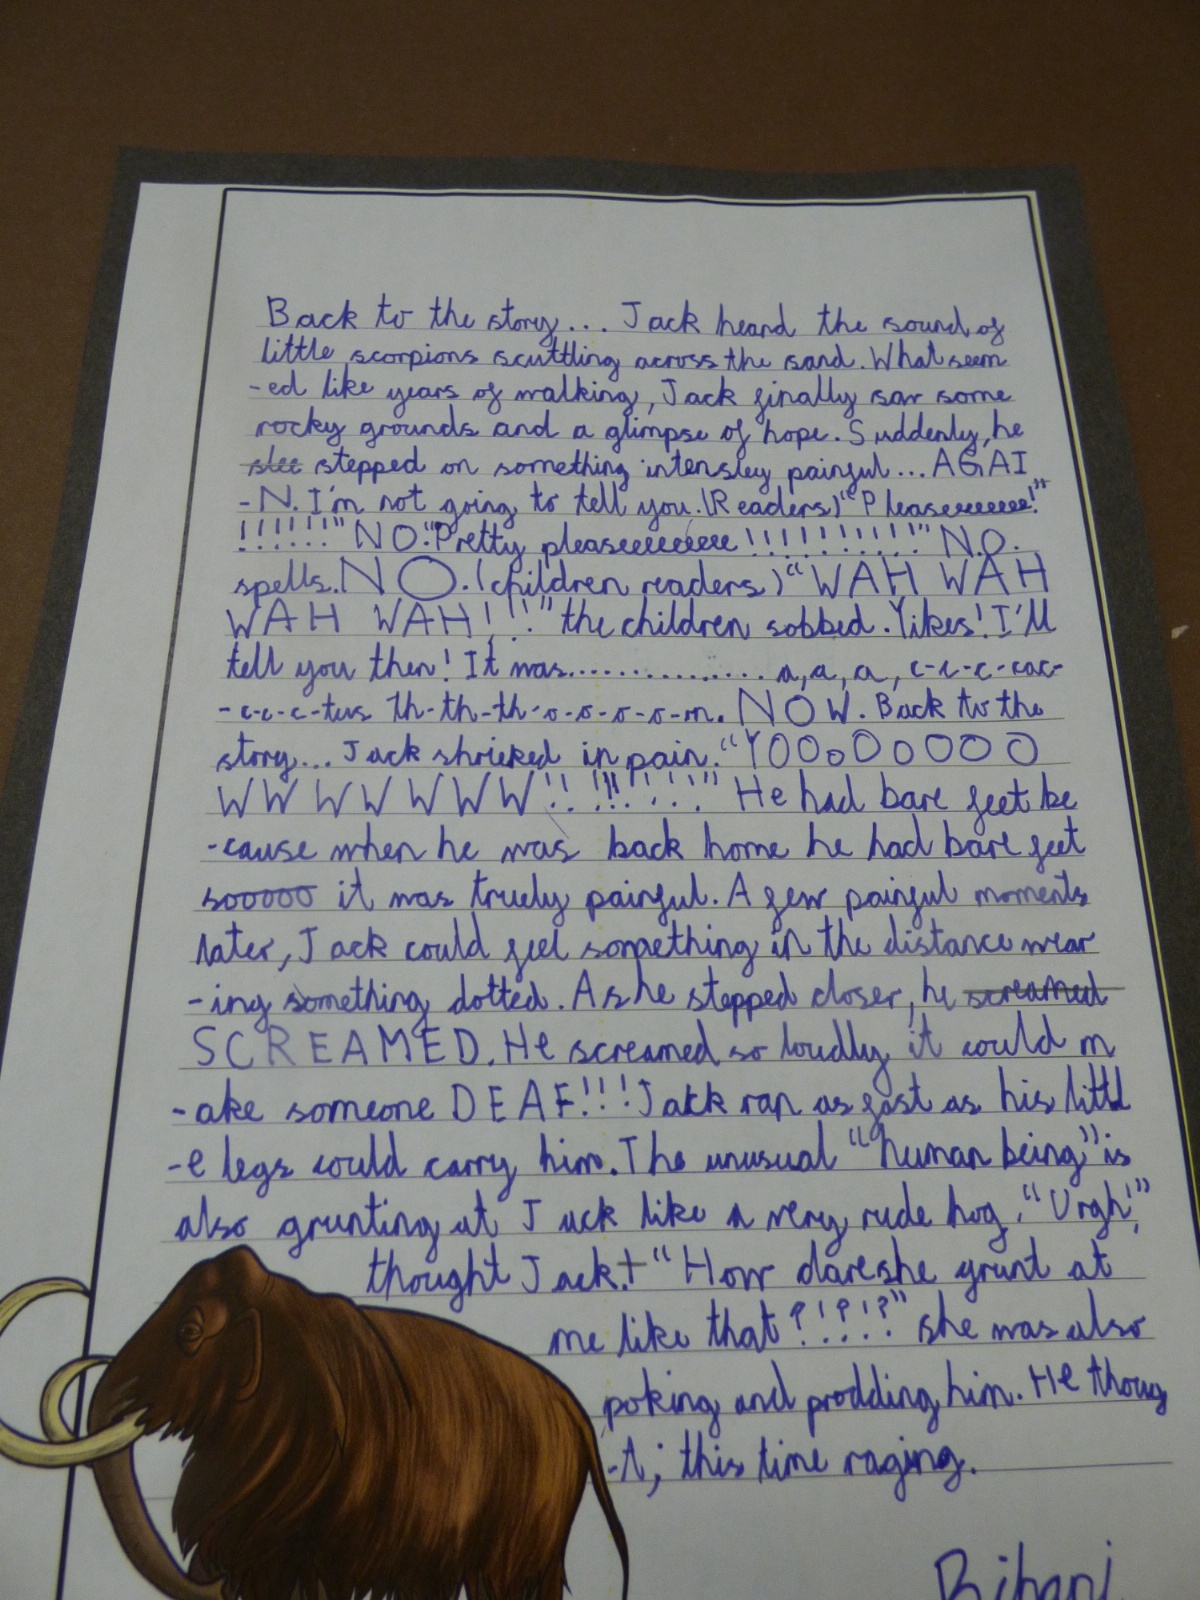 Back to the story... Jack heard the sound of
little scorpions scuttling across the sand. What seem
-ed like years of walking, Jack finally saw some
rocky grounds and a glimpse of hope. Suddenly, he
stee stepped on something intensley painful... AGAI
-N. I'm not going to tell you. (Readers) "Pleaseeeeeee!"
!!!!!!" NO! "Pretty pleaseeeeeeeee!!!!!!!!!!" N.O.
spells. NO. (children readers) "WAH WAH
WAH WAH!!!" the children sobbed. Yikes! I'll
tell you then! It was................ a, a, a, c-c-c-cac-
-c-c-c-tus th-th-th-o-o-o-o-o-rn. NOW. Back to the
story... Jack shrieked in pain. "YOOoOoOOO
WWWWWWW!!!!!!!!" He had bare feet be
-cause when he was back home he had bare feet
sooooo it was truely painful. A few painful moments
later, Jack could feel something in the distance wear
-ing something dotted. As he stepped closer, he screamed
SCREAMED. He screamed so loudly it could m
-ake someone DEAF!!! Jack ran as fast as his littl
-e legs could carry him. The unusual "human being" is
also grunting at Jack like a very rude hog. "Urgh!"
thought Jack. "How dare she grunt at
me like that?!?!?" she was also
poking and prodding him. He thoug
-t; this time raging.
Rihani